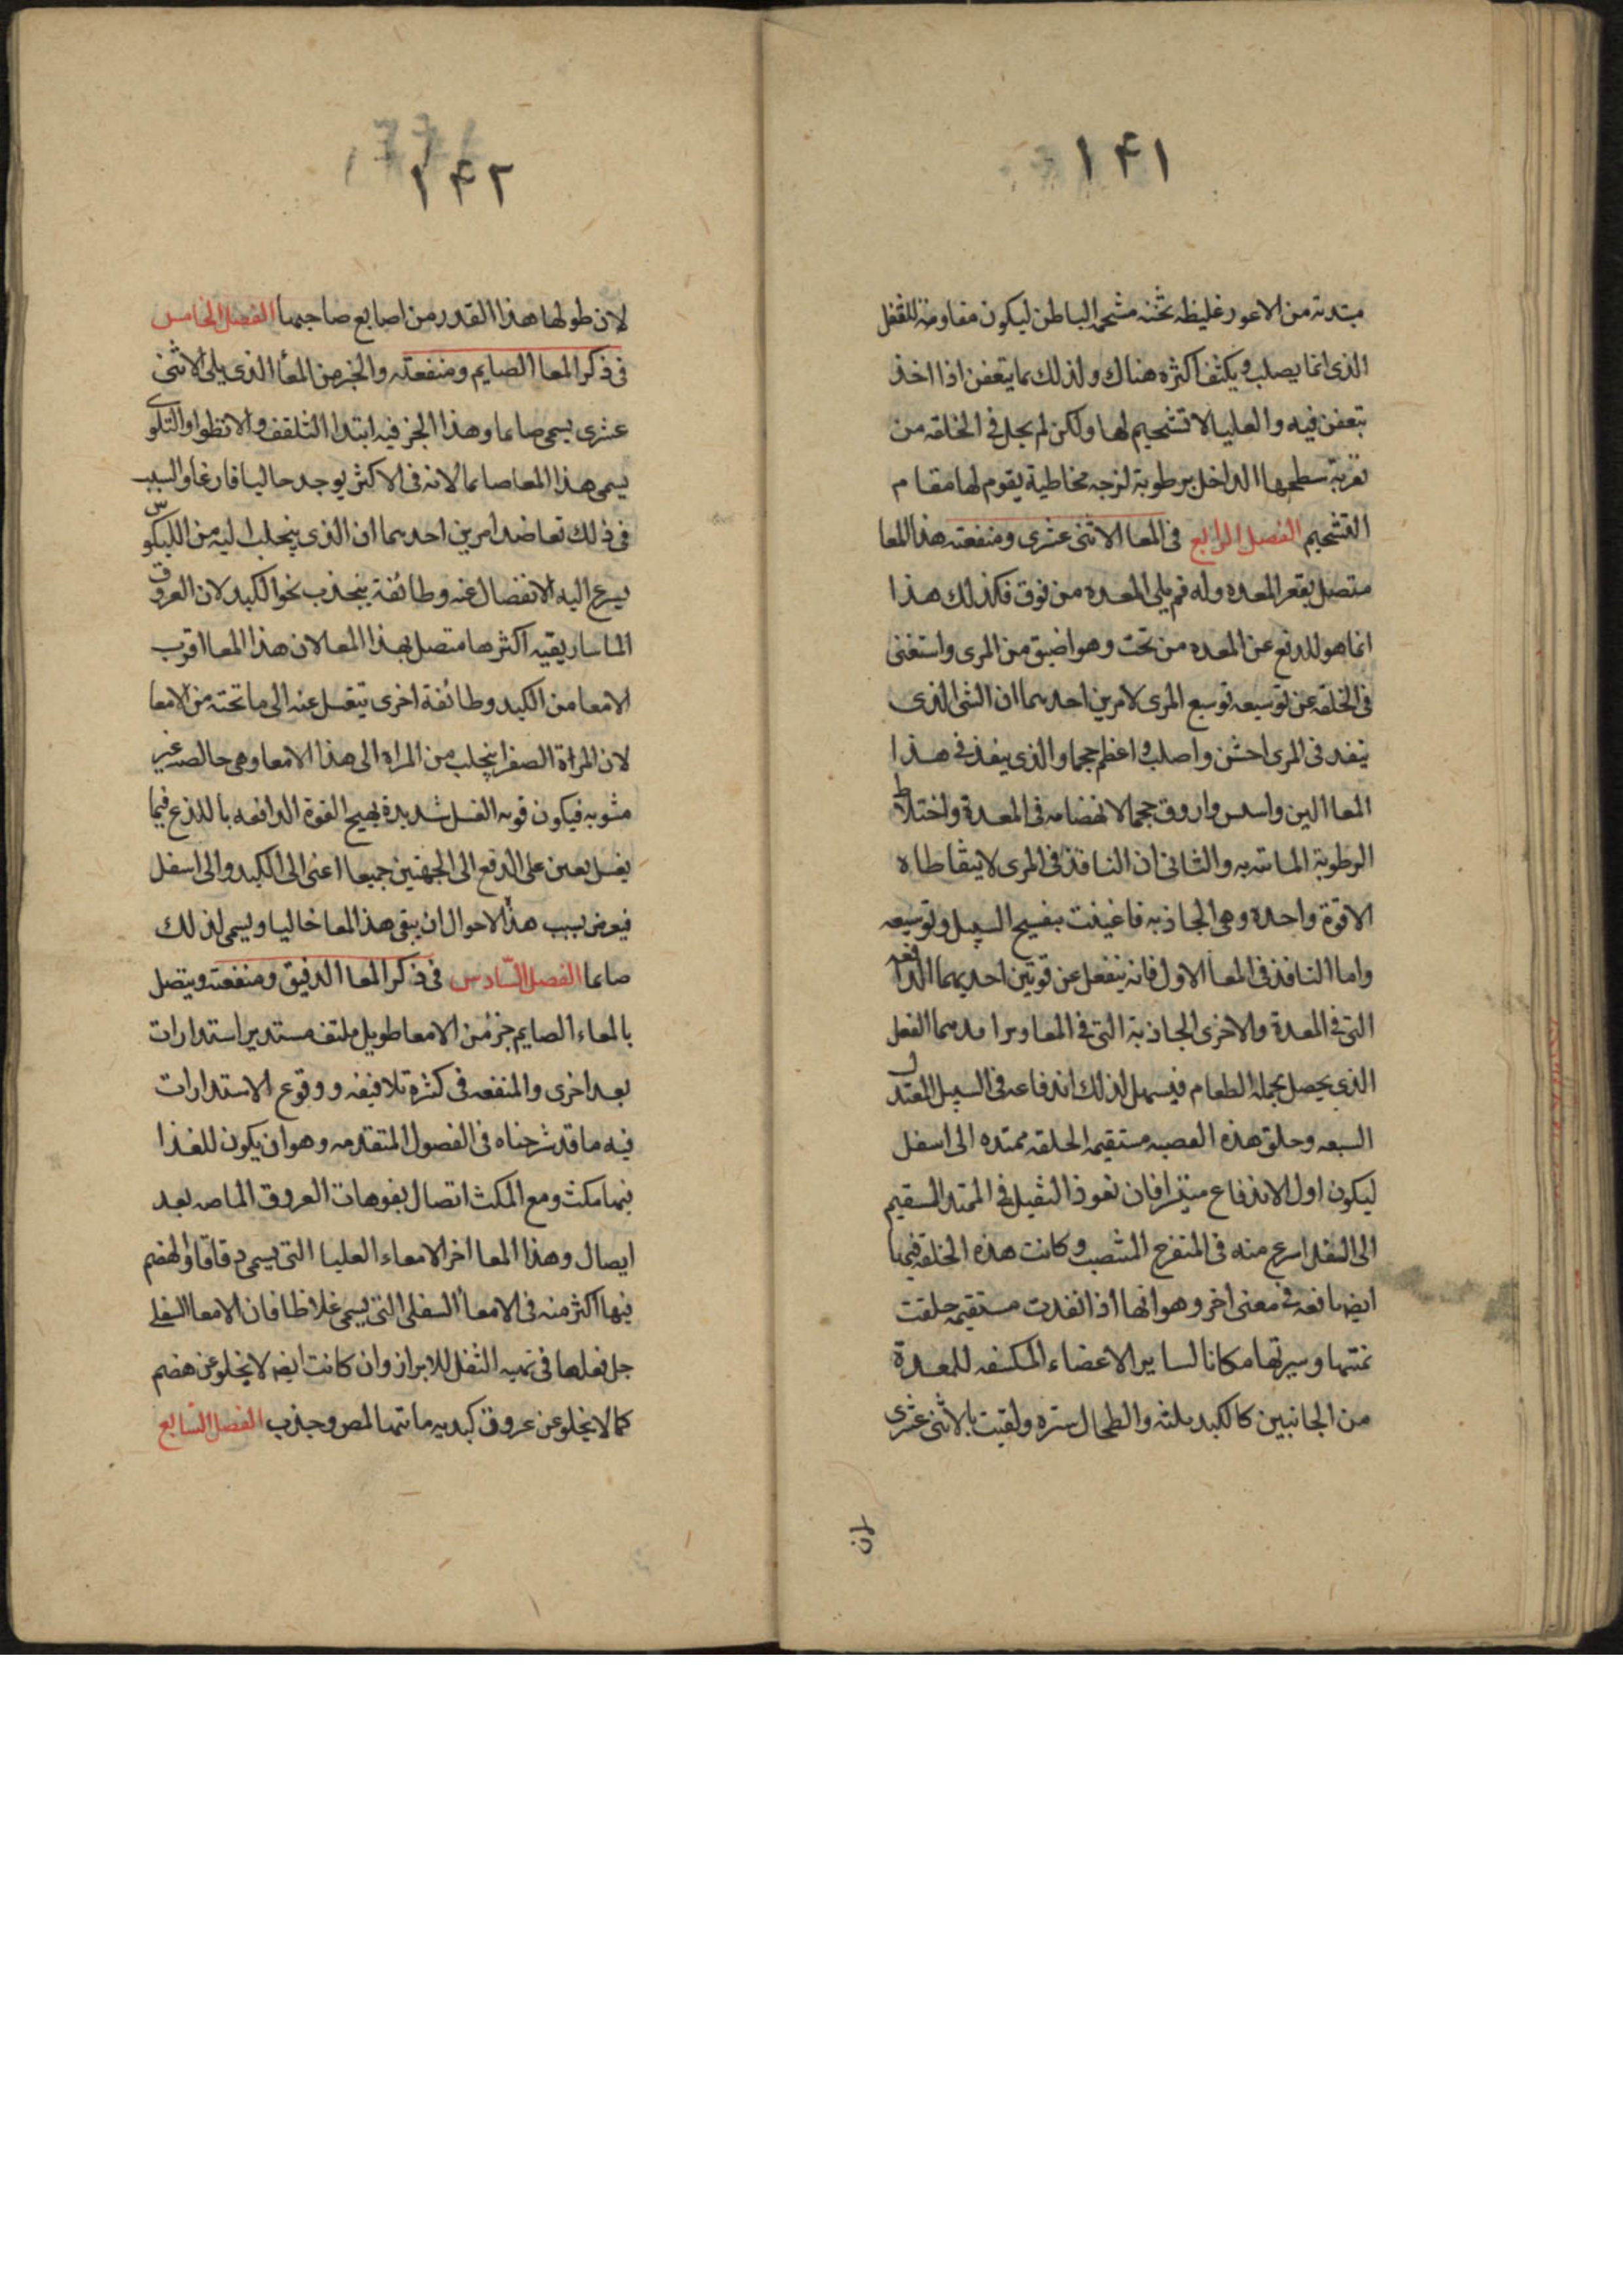 ١۴١
مبتدئه من الاعور غليظه ثخنه مشحمه الباطن ليكون مقاومة للثفل
الذى انما يصلب و يكثف اكثره هناك ولذلك بما يتعفن اذا اخذ
تبعفن فيه والعليا لا تشحيم لها ولكن لم يحل فى الخلقه من
تغرية سطحها الداخل برطوبة لزجه مخاطية يقوم لها مقام
التشحيم الفصل الرابع فى المعا الاثنى عشرى ومنفعته هذا المعا
متصل بقعر المعده وله فم يلى المعدة من فوق فكذلك هذا
انما هو للدفع عن المعده من تحت وهو اضيق من المرى واستغنى
فى الخلقه عن توسيعه توسيع المرى لامرين احدهما ان الشى الذى
ينفد فى المرى اخشن واصلب و اعظم حجما والذى ينفذ فى هذا
المعا الين واسلس وارق حجما لانهضامه فى المعدة واختلاط
الرطوبة المائيه به والثانى ان النافذ فى المرى لا يتقاطاه
الا قوة واحدة وهى الجاذبه فاعينت بتفسيح السبيل وتوسيعه
واما النافذ فى المعا الاول فانه ينفعل عن قوتين احديهما الدافعه
التى فى المعدة والاخرى الجاذبة التى فى المعا ويرافدهما الفعل
الذى يحصل بجملة الطعام فيسهل لذلك اندفاعه فى السبيل المعتدل
السعه وخلق هذه القصبه مستقيمه الخلقه ممتده الى اسفل
ليكون اول الاندفاع متيسرا فان نفوذ الثقيل فى الممتد المستقيم
الى السفل اسرع منه فى المتفرج المنتصب وكانت هذه الخلقه فيها
ايضا نافعه فى معنى اخر وهو انها اذا نفدت مستقيمه خلقت
يمنتها ويسرتها مكانا لساير الاعضاء المكتنفه للمعدة
من الجانبين كالكبد يمنة والطحال يسره ولقبت بالاثنى عشرى
لان
١۴٢
لان طولها هذا القدر من اصابع صاحبها الفصل الخامس
فى ذكر المعا الصايم ومنفعته والجز من المعا الذى يلى الاثنى
عشرى يسمى صايما وهذا الجز فيه ابتدا التلفف والانطوا والتلوى
يسمى هذا المعا صايما لانه فى الاكثر يوجد خاليا فارغا والسبب
فى ذلك تعاضد امرين احدهما ان الذى ينجلب اليه من الكيلوس
يسرع اليه الانفصال عنه وطائفة ينجذب نحو الكبد لان العروق
الماساريقيه اكثرها متصل بهذا المعا لان هذا المعا اقرب
الامعا من الكبد وطائفة اخرى يتغسل عنه الى ما تحته من الامعا
لان المرة الصفرا ينجلب من المراه الى هذا الامعا وهى خالصه غير
مشوبه فيكون قوه الغسل شديدة يهيج القوة الدافعه بالذع فيما
يغسل يعين على الدفع الى الجهتين جميعا اعنى الى الكبد والى اسفل
فيعرض بسبب هذا الاحوال ان يبقى هذا المعا خاليا ويسمى لذلك
صايما الفصل السادس فى ذكر المعا الدقيق ومنفعته ويتصل
بالمعاء الصايم جزء من الامعا طويل ملتف مستدير استدارات
بعد اخرى والمنفعه فى كثرة تلافيفه و وقوع الاستدارات
فيه ما قد شرحناه فى الفصول المتقدمه وهو ان يكون للغذا
فيها مكث ومع المكث اتصال بفوهات العروق الماصه بعد
ايصال وهذا المعا اخر الامعاء العليا التى يسمى دقاقا والهضم
فيها اكثر منه فى الامعا السفلى التى يسمى غلاظا فان الامعا السفلى
جل فعلها فى تهيه الثفل للابراز وان كانت ايضا لا يخلو عن هضم
كما لا يخلو عن عروق كبديه ماتيها المص وجذب الفصل السابع